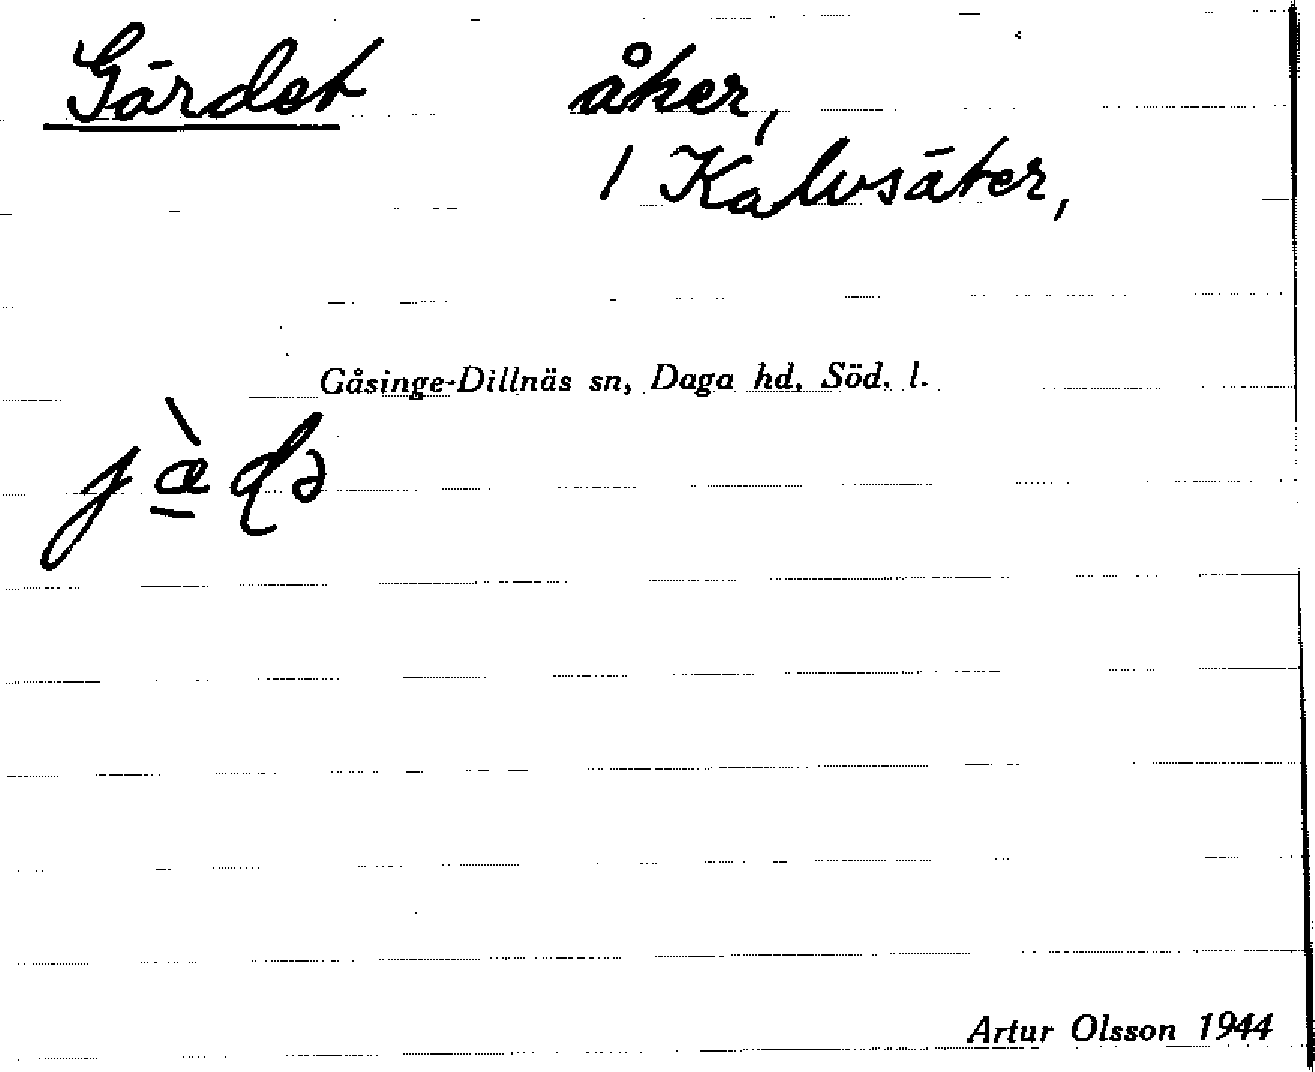 Gärdet åker,
1 Kalvsäter,
Gåsinge-Dillnäs sn, Daga hd, Söd. l.
jæ̠̀ɖə
Artur Olsson 1944